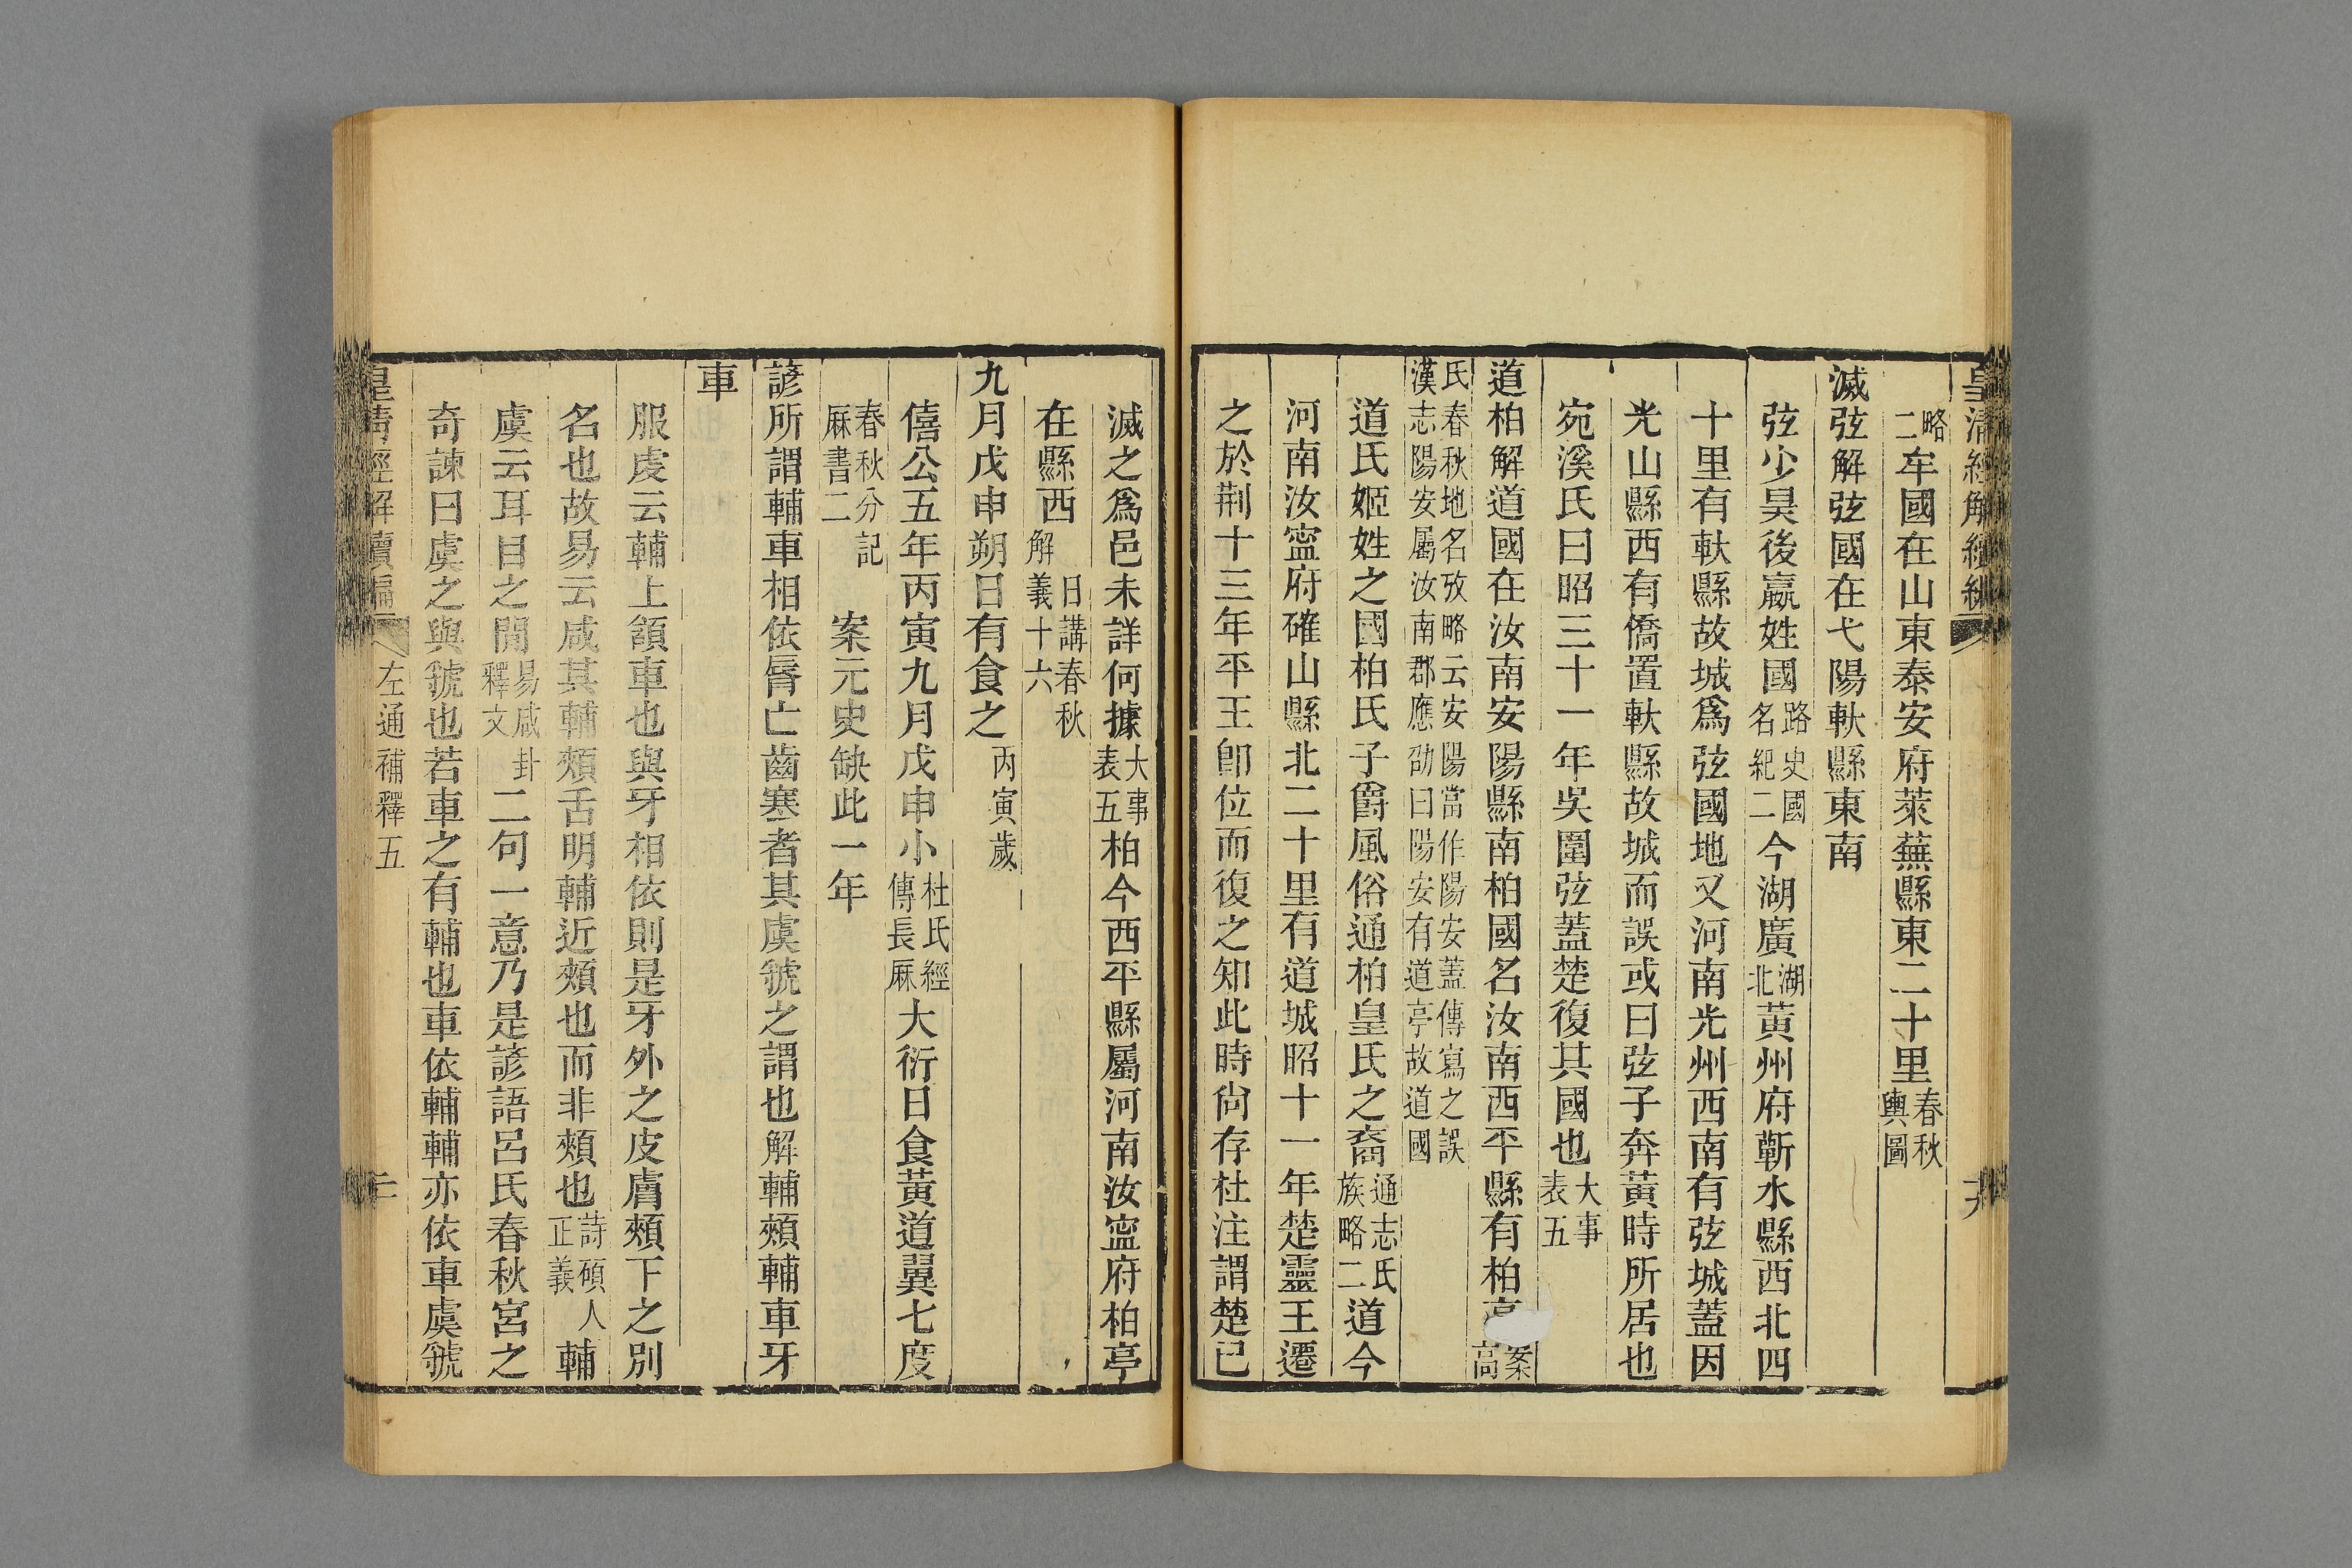 略二牟國在山東泰安府萊蕪縣東二十里春秋輿圖
滅弦解弦國在弋陽軑縣東南
弦少昊後嬴姓國路史國名紀二今湖廣湖北黃州府蘄水縣西北四
十里有軑縣故城爲弦國地又河南光州西南有弦城蓋因
光山縣西有僑置軑縣故城而誤或曰弦子奔黃時所居也
宛溪氏曰昭三十一年吳圍弦蓋楚復其國也大事表五
道柏解道國在汝南安陽縣南柏國名汝南西平縣有柏亭案高
氏春秋地名攷略云安陽當作陽安蓋傳寫之誤漢志陽安屬汝南郡應劭曰陽安有道亭故道國
道氏姬姓之國柏氏子爵風俗通柏皇氏之裔通志氏族略二道今
河南汝寍府確山縣北二十里有道城昭十一年楚靈王遷
之於荆十三年平王卽位而復之知此時尙存杜注謂楚已
滅之爲邑未詳何據大事表五柏今西平縣屬河南汝寍府柏亭
在縣西日講春秋解義十六
九月戊申朔日有食之丙寅歲
僖公五年丙寅九月戊申小杜氏經傳長厤大衍日食黃道翼七度
春秋分記厤書二案元史缺此一年
諺所謂輔車相依脣亡齒寒者其虞虢之謂也解輔頰輔車牙
車
服虔云輔上頷車也與牙相依則是牙外之皮膚頰下之別
名也故易云咸其輔頰舌明輔近頰也而非頰也詩碩人正義輔
虞云耳目之閒易咸卦釋文二句一意乃是諺語呂氏春秋宮之
奇諫曰虞之與虢也若車之有輔也車依輔輔亦依車虞虢
皇淸經解續編 左通補釋五